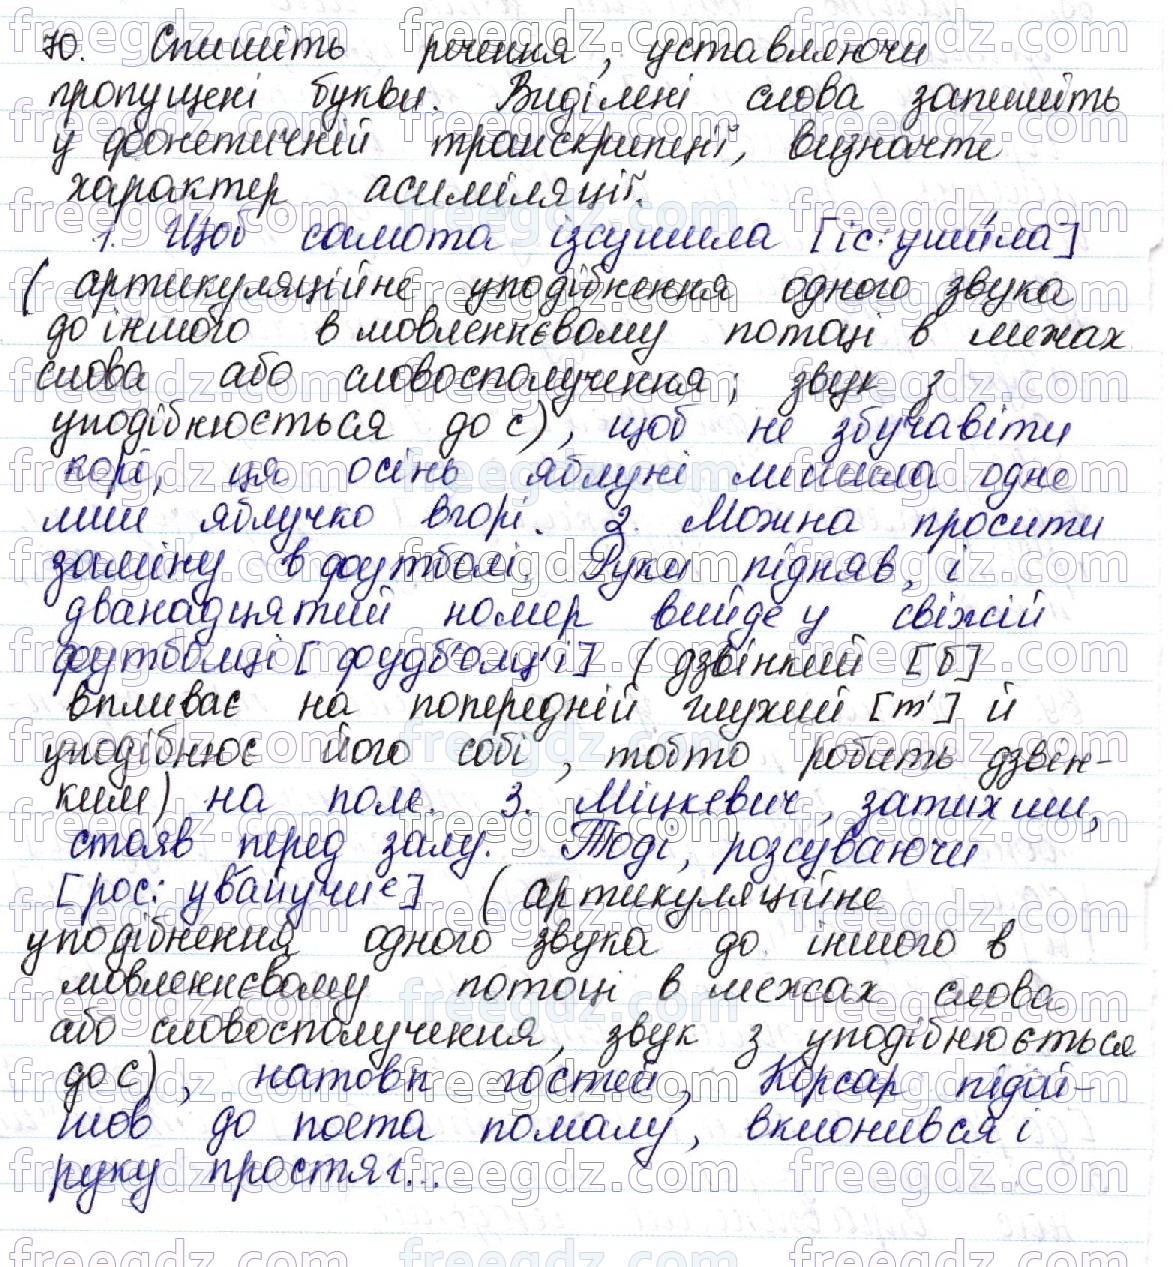 70. Спишіть речення, уставляючи
пропущені букви. Виділені слова запишіть
у фонетичній транскрипції, визначте
характер асиміляції.
1. Щоб самота ізсушила [іс:ушила]
( артикуляційне уподібнення одного звука
до іншого в мовленнєвому потоці в межах
слова або словосполучення; звук з
уподібнюється до с), щоб не збучавіти
корі, ця осінь яблуні лишила одне
лиш яблучко вгорі. 2. Можна просити
заміну в футболі. Руки підняв, і
дванадцятий номер вийде у свіжій
футболці [ фудб'олц'і] (дзвінкий [б]
впливає на попередній глухий [т'] й
уподібнює його собі, тобто робить дзвін-
ким) на поле. 3. Міцкевич, затихши,
стояв перед залу. Тоді, розсуваючи
[рос: увайучие] ( артикуляційне
уподібнення одного звука до іншого в
мовленнєвому потоці в межах слова
або словосполучення, звук з уподібнюється
до с), натовп гостей, Корсар підій-
шов до поета помалу, вклонився і
руку простяг...
freegdz.com